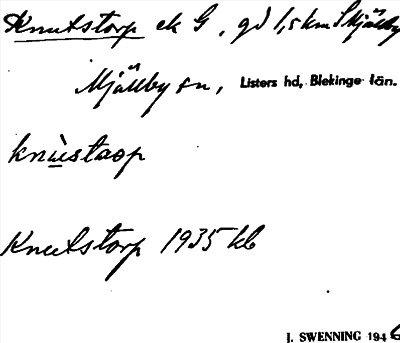 Knutstorp ek G, gd 1,5 km S Mjällby
Mjällby sn, Listers hd, Blekinge län.
knùstaop
Knutstorp 1935 kb
J. SWENNING 1946